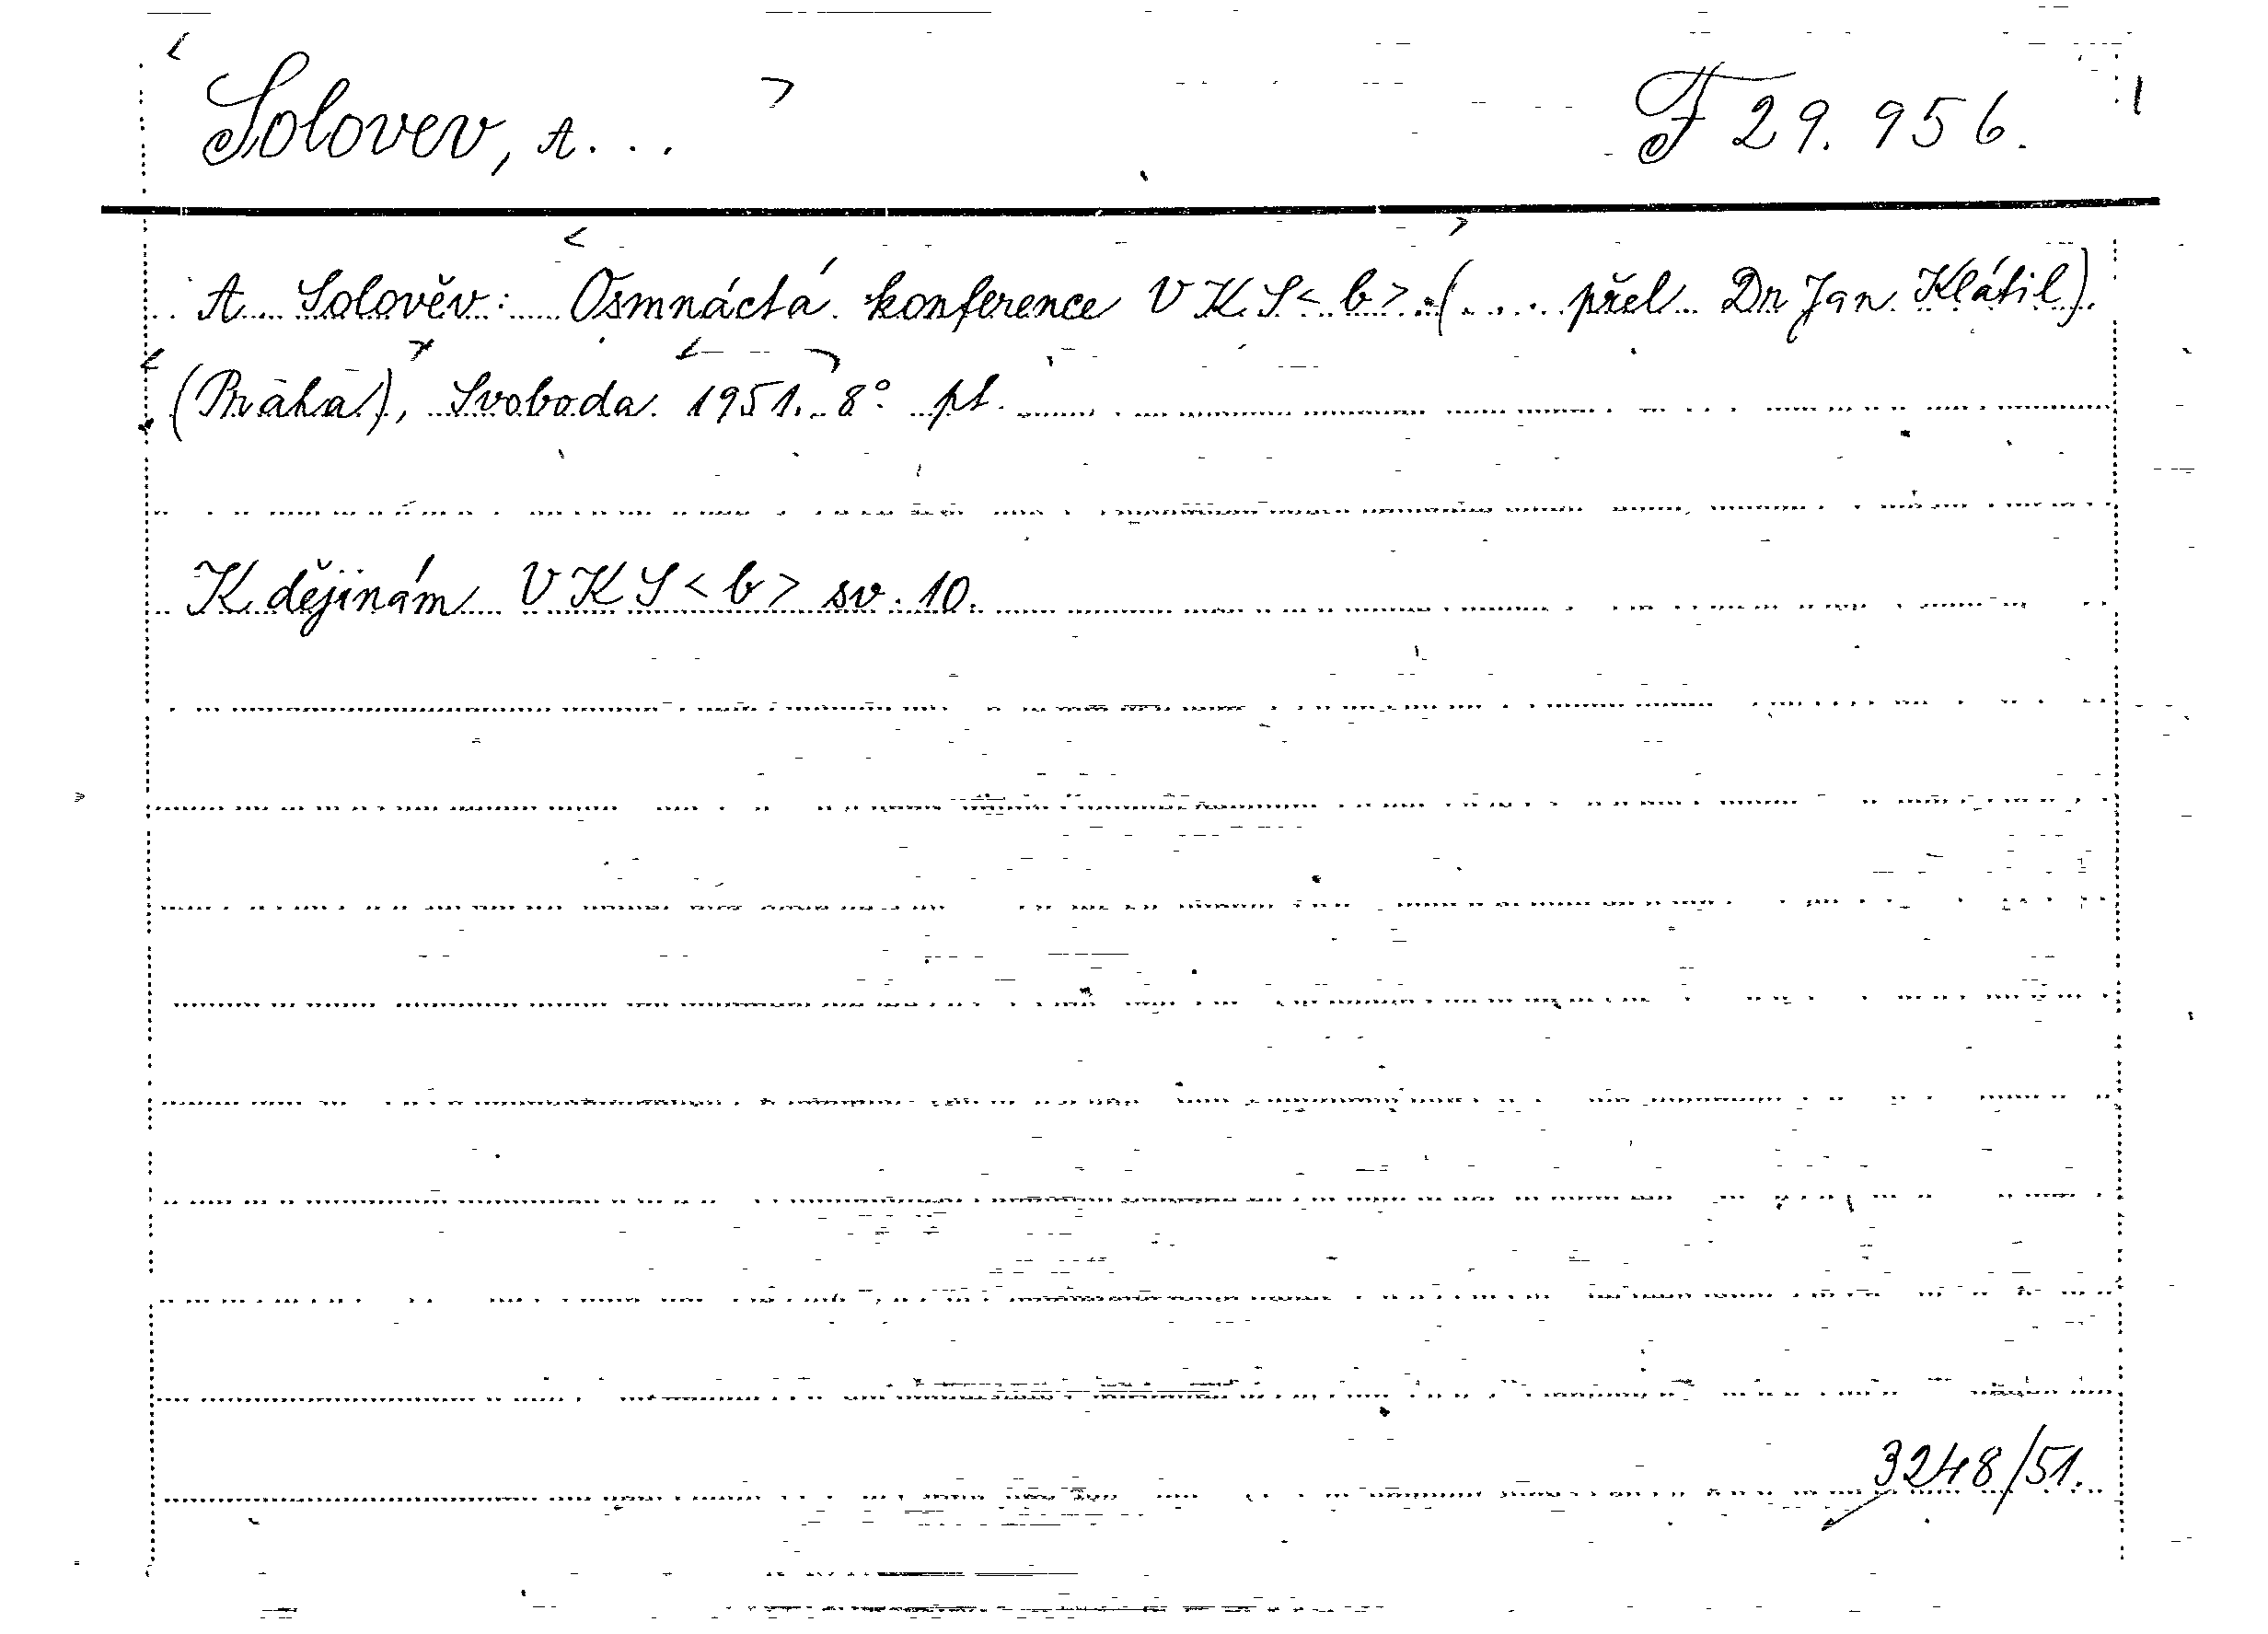 Solovev, A... F 29.956.
A. Solověv: Osmnáctá konference VKS<b>. (.... přel. Dr Jan Klátil).
(Praha), Svoboda 1951. 8° pt.
K dějinám VKS<b> sv. 10.
3248/51.